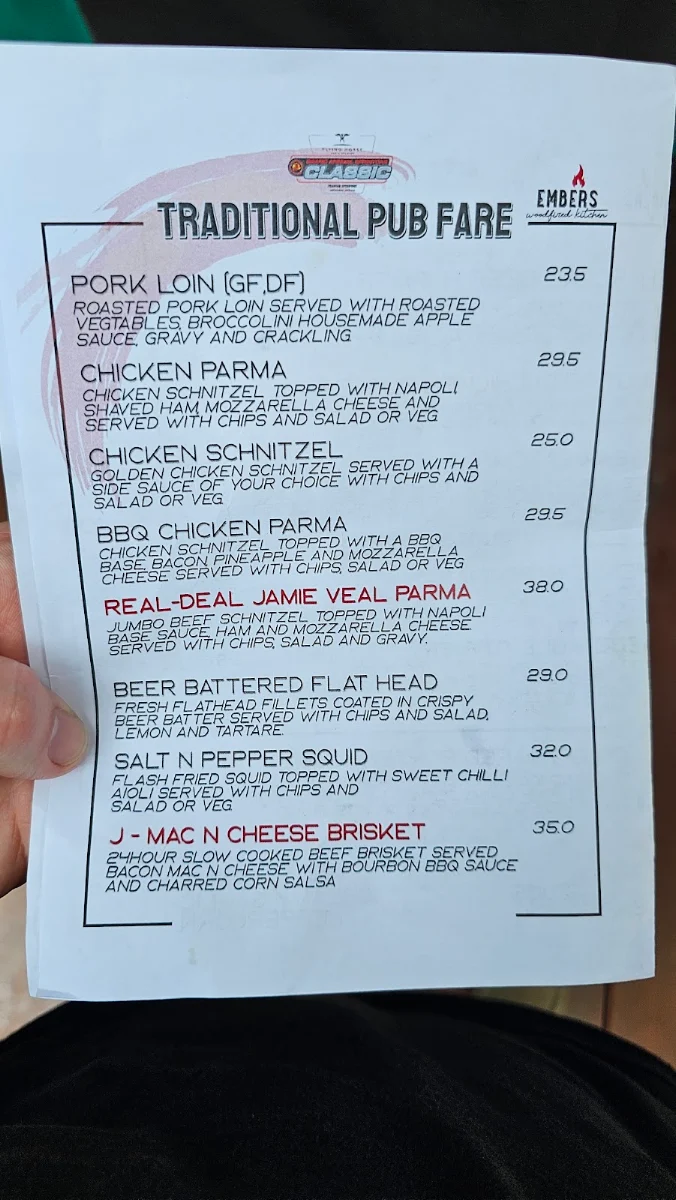 CLASSIC
EMBERS
woodfired kitchen
TRADITIONAL PUB FARE
PORK LOIN (GF,DF) 23.5
ROASTED PORK LOIN SERVED WITH ROASTED
VEGTABLES, BROCCOLINI HOUSEMADE APPLE
SAUCE, GRAVY AND CRACKLING
CHICKEN PARMA 29.5
CHICKEN SCHNITZEL TOPPED WITH NAPOLI,
SHAVED HAM, MOZZARELLA CHEESE AND
SERVED WITH CHIPS AND SALAD OR VEG
CHICKEN SCHNITZEL 25.0
GOLDEN CHICKEN SCHNITZEL SERVED WITH A
SIDE SAUCE OF YOUR CHOICE WITH CHIPS AND
SALAD OR VEG.
BBQ CHICKEN PARMA 29.5
CHICKEN SCHNITZEL TOPPED WITH A BBQ
BASE, BACON, PINEAPPLE AND MOZZARELLA
CHEESE SERVED WITH CHIPS, SALAD OR VEG
REAL-DEAL JAMIE VEAL PARMA 38.0
JUMBO BEEF SCHNITZEL TOPPED WITH NAPOLI
BASE SAUCE, HAM AND MOZZARELLA CHEESE.
SERVED WITH CHIPS, SALAD AND GRAVY.
BEER BATTERED FLAT HEAD 29.0
FRESH FLATHEAD FILLETS COATED IN CRISPY
BEER BATTER SERVED WITH CHIPS AND SALAD,
LEMON AND TARTARE.
SALT N PEPPER SQUID 32.0
FLASH FRIED SQUID TOPPED WITH SWEET CHILLI
AIOLI SERVED WITH CHIPS AND
SALAD OR VEG
J - MAC N CHEESE BRISKET 35.0
24HOUR SLOW COOKED BEEF BRISKET SERVED
BACON MAC N CHEESE WITH BOURBON BBQ SAUCE
AND CHARRED CORN SALSA